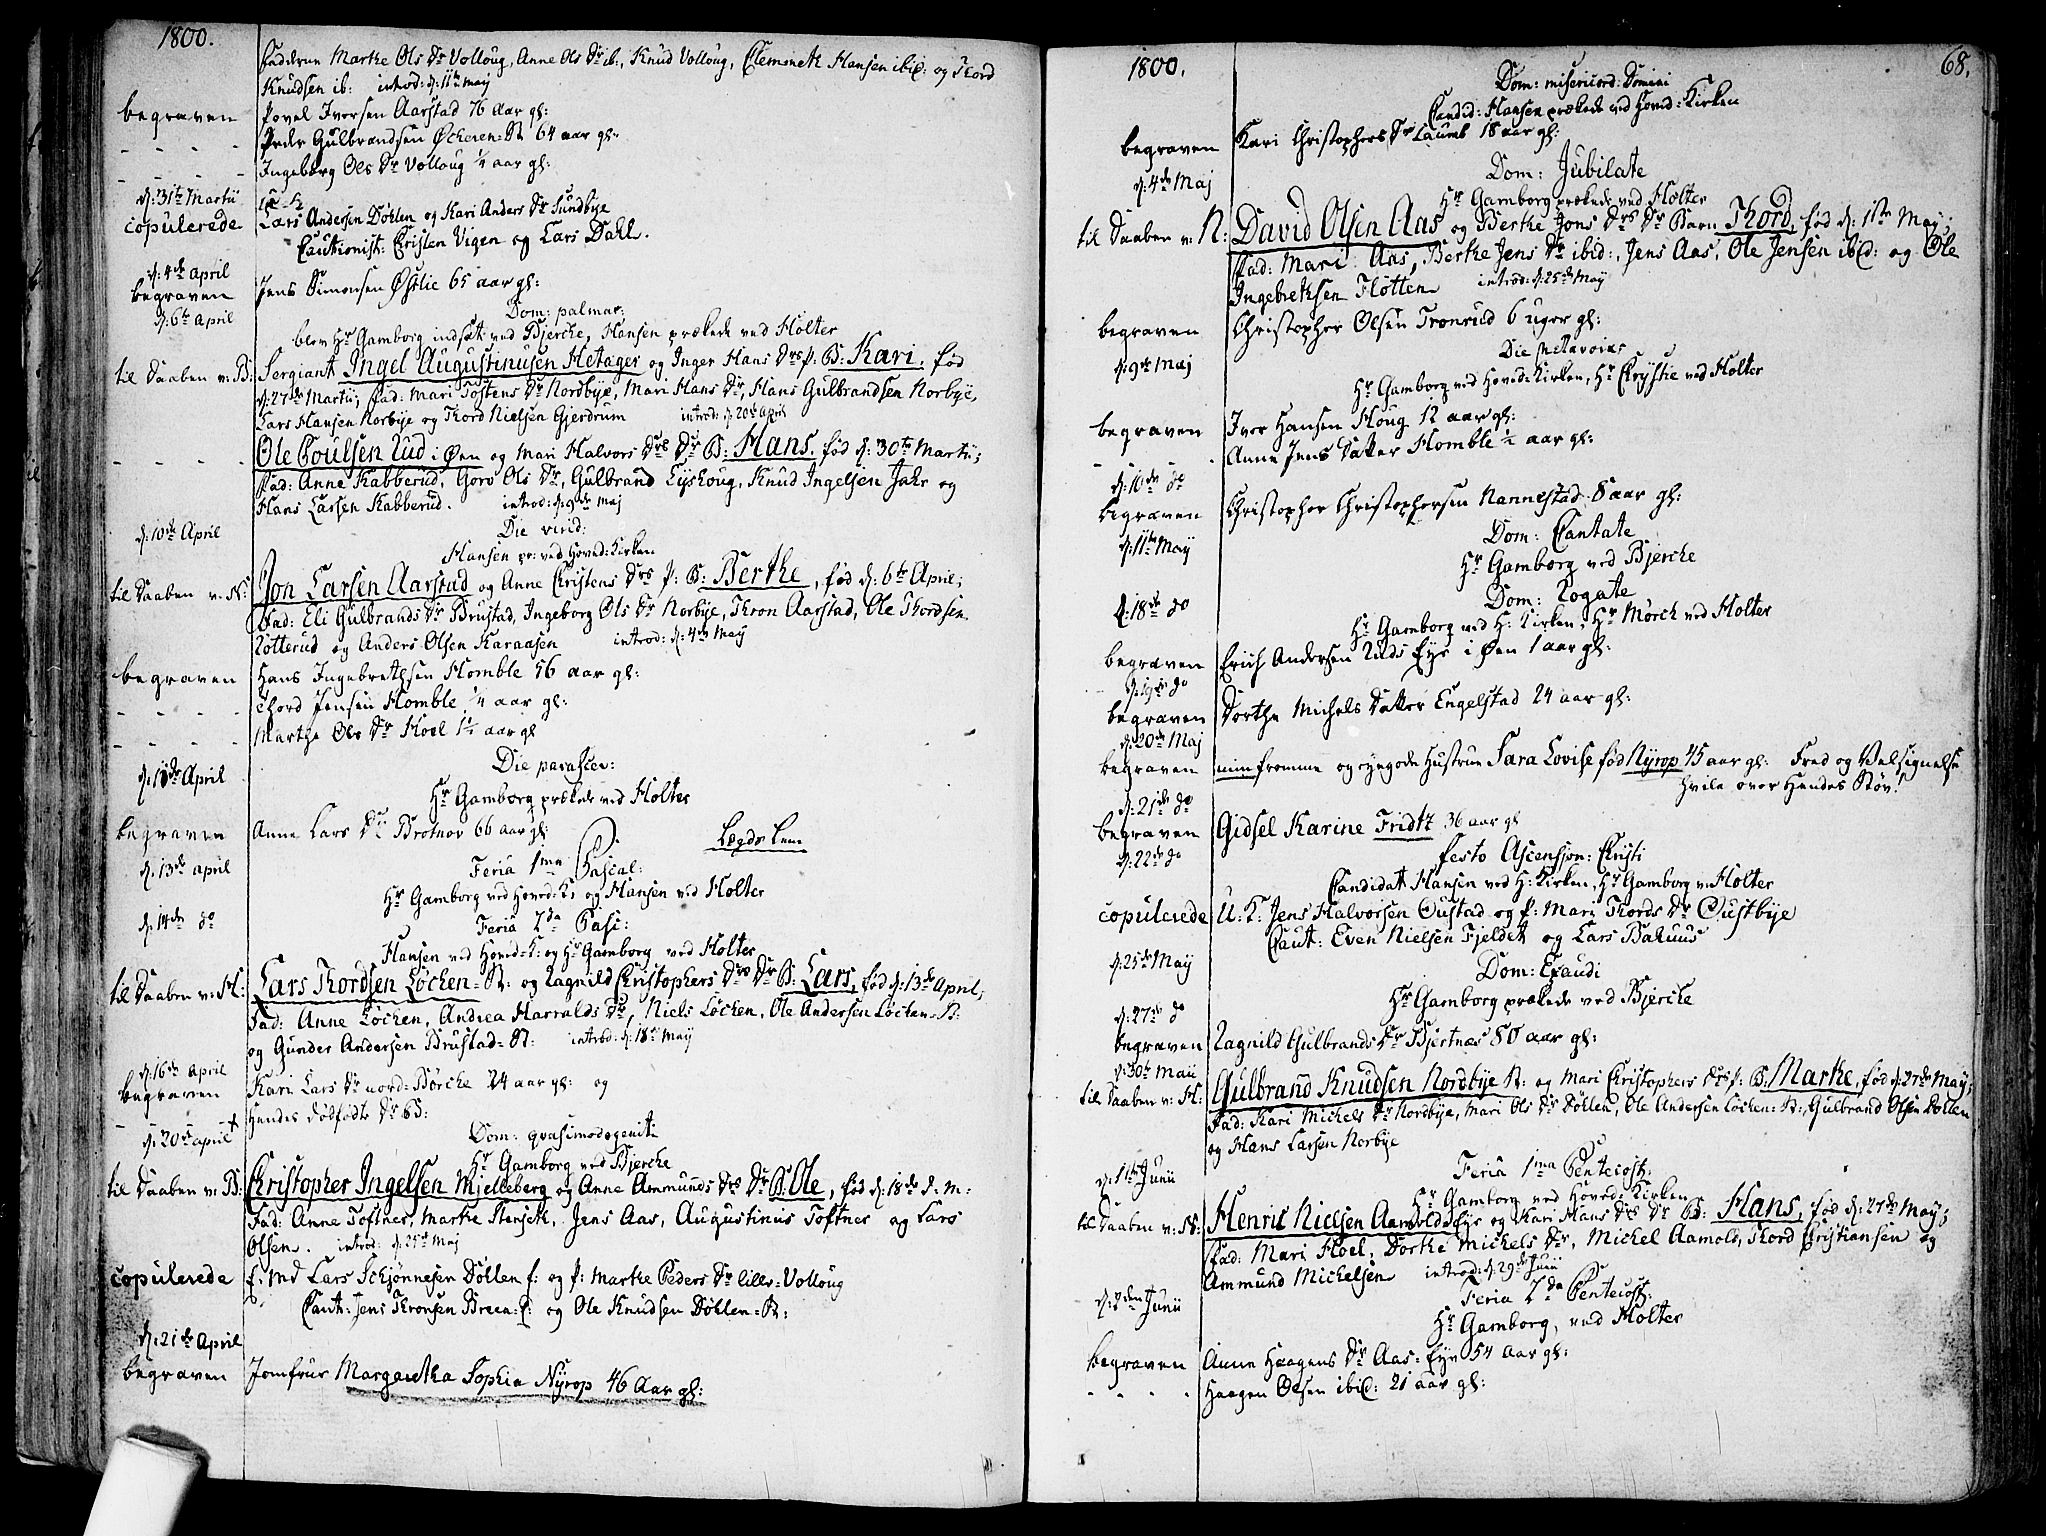 1800.
Fadderne Marthe Ols Dr Volloug, Anne Ols Dr ib:, Knud Volloug, Clemmeth Hansen ibid: og Thord
Knudsen ib: introd: d: 11te maÿ
begraven Povel Iversen Aarstad 76 Aar gl:
- - - - Peder Gulbrandsen Øcheren-St 64 aar gl:
- - - - Ingeborg Ols Dr Volloug ¼ aar gl:
d: 31te Martii
copulerede Lars Andersen Døhlen og Kari Anders Dr Sundbye
Cautionist: Christen Vigen og Lars Dahl.
d: 4de April
begraven Jens Simensen Østlie 65 aar gl:
d: 6te April Dom: palmar:
blev Hr Gamborg indsat ved Bjercke, Hansen prækede ved Holter
til Daaben v: B: Sergiant Ingel Augustinusen Hetager og Inger Hans Drs p. B: Kari, fød
d: 27de Martii; Fad: Mari Tostens Dr Nordbye, Mari Hans Dr, Hans Gulbrandsen Norbye,
Lars Hansen Norbye og Thord Nielsen Gjerdrum introd: d: 20de April
- - - - Ole Poulsen Rud i Øen og Mari Halvors Drs Dr B: Hans, fød d: 30te Martii;
Fad: Anne Kabberud, Goro Ols Dr, Gulbrand Lyshoug, Knud Ingelsen Jahr og
Hans Larsen Kabberud. introd: d: 9de Maj
d: 10de April Die virid:
Hansen pr: ved Hoved-Kirken
til Daaben v: H: Jon Larsen Aarstad og Anne Christens Drs p: B: Berthe, fød d: 6te April;
Fad: Eli Gulbrands Dr Brustad, Ingeborg Ols Dr Norbye, Thron Aarstad, Ole Thordsen
Rotterud og Anders Olsen Karaasen introd: d: 4de May
begraven Hans Ingebrethsen Homble 56 aar gl:
- - - - Thord Jensen Homble ¼ aar gl:
- - - - Marthe Ols Dr Hoel 1½ aar gl
d: 11de April Die parascev:
Hr Gamborg prækede ved Holter
begraven Anne Lars Dr Brotnov 66 aar gl: Lægds Lem
d: 13de april Feria 1ma Pascal:
Hr Gamborg ved Hoved-K: og Hansen ved Holter
d: 14de do Feria 2da Pasc:
Hansen ved Hoved-K: og Hr Gamborg ved Holter
til Daaben v: H: Lars Thordsen Løcken-St: og Ragnild Christophers Drs Dr B: Lars, fød d: 13de April;
Fad: Anne Løcken, Andrea Harralds Dr, Niels Løcken, Ole Andersen Løcken-St:
og Gunder Andersen Brustad-St: introd: d: 18de May
d: 16de april
begraven Kari Lars Dr nord-Børcke 24 aar gl: og
- - Hendes dødfødte Dr B:
d: 20de april Dom: qvasimodogeniti
Hr Gamborg ved Bjercke
til Daaben v: B: Christopher Ingelsen Mjelleberg og Anne Ammunds Drs Dr B: Ole, fød d: 18de d: m:
Fad: Anne Toftner, Marthe Stenseth, Jens Aas, Augustinus Toftner og Lars
Olsen. introd: d: 25de Maj
copulerede E: Md Lars Schjønnesen Døhlen f: og P: Marthe Peders Dr lille-Volloug
Caut: Jens Thronsen Breen-E: og Ole Knudsen Døhlen-St:
d: 21de April
begraven Jomfrue Margaretha Sophia Nyrop 46 Aar gl:
1800. 68.
Dom: misericord: Domini
Candid: Hansen prækede ved Hoved-Kirken
begraven Kari Christophers Dr Laumb 18 aar gl:
d: 4de Maj Dom: Jubilate
Hr Gamborg prækede ved Holter
til Daaben v: N: David Olsen Aas og Berthe Jens Drs Dr Barn Thord, fød d: 1ste May;
Fad: Mari Aas, Berthe Jens Dr ibid:, Jens Aas, Ole Jensen ibid: og Ole
Ingebrethsen Holter introd: d: 25de May
begraven Christopher Olsen Tronrud 6 uger gl:
d: 9de Maj Die Metavoias
Hr Gamborg ved Hoved-Kirken, Hr Chrystie ved Holter
begraven Iver Hansen Houg 12 aar gl:
- - Anne Jens Datter Homble ½ aar gl:
d: 10de do
begraven Christopher Christophersen Nannestad 8 aar gl:
d: 11te May Dom: Cantate
Hr Gamborg ved Bjercke
d: 18de do Dom: Rogate
Hr Gamborg ved H: Kirken, Hr Mørch ved Holter
begraven Erich Andersen Ruds Eye i Øen 1 aar gl:
d: 19de do
begraven Dorthe Michels Datter Engelstad 24 aar gl:
d: 20de Maj
begraven min fromme og ejegode Hustrue Sara Lovise fød Nyrop 45 aar gl: Fred og Velsignelse
hvile over Hendes Støv!
d: 21de do
begraven Gidsel Karine Fridtz 36 aar gl
d: 22de do Festo Ascensjon: Christi
Candidat Hansen ved H: Kirken, Hr Gamborg v: Holter
copulerede U: K: Jens Halvorsen Oustad og P: Mari Thords Dr Oustbye
Caut: Even Nielsen Fjeldet og Lars Bakuus
d: 25de May Dom: Exaudi
Hr Gamborg prækede ved Bjercke
d: 27de do
begraven Ragnild Gulbrands Dr Bjertnæs 80 aar gl:
d: 30te Maii
til Daaben v: H: Gulbrand Knudsen Nordbye St: og Mari Christophers Drs p: B: Marthe, fød d: 27de May;
Fad: Kari Michels Dr Nordbye, Mari Ols Dr Døhlen, Ole Andersen Løcken-St:, Gulbrand Olsen Døhlen
og Hans Larsen Norbye
d: 1te Junii Feria 1ma Pentecost:
Hr Gamborg ved Hoved-Kirken
til Daaben v: H: Henric Nielsen Aamolds Eye og Kari Hans Drs Dr B: Hans, fød d: 27de May;
Fad: Mari Hoel, Dorthe Michels Dr, Michel Aamold, Thord Christiansen og
Ammund Michelsen introd: d: 29de Junii
d: 2den Junii Feria 2da Pentecost:
Hr Gamborg, ved Holter
begraven Anne Haagens Dr Aas-Eye 54 aar gl:
- - - - Haagen Olsen ibid: 21 aar gl: